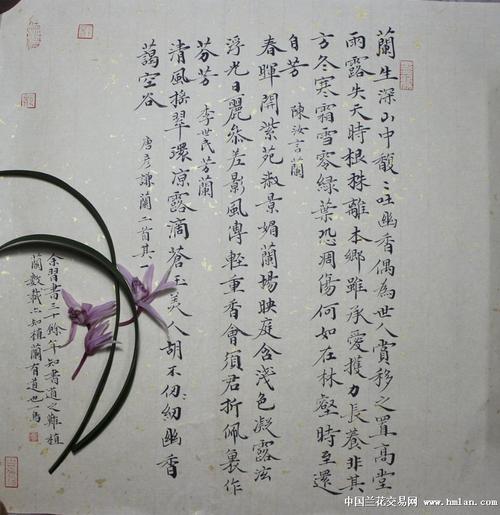 蘭生深山中馥〻吐幽香偶為世人賞移之置高堂
雨露失天時根株離本鄉雖承愛護力長養非其
方冬寒霜雪零綠葉恐凋傷何如在林壑時至還
自芳 陳汝言蘭
春暉開紫苑淑景媚蘭場映庭含淺色凝露泫
浮光日麗參差影風傳輕重香會須君折佩裏作
芬芳 李世民芳蘭
清風搖翠環涼露滴蒼玉美人胡不仞紉幽香
藹空谷 唐彥謙蘭二首其
余習書三十餘年知書道之難植
蘭數載亦知植蘭有道也一馬
中国兰花交易网 www.hmlan.com